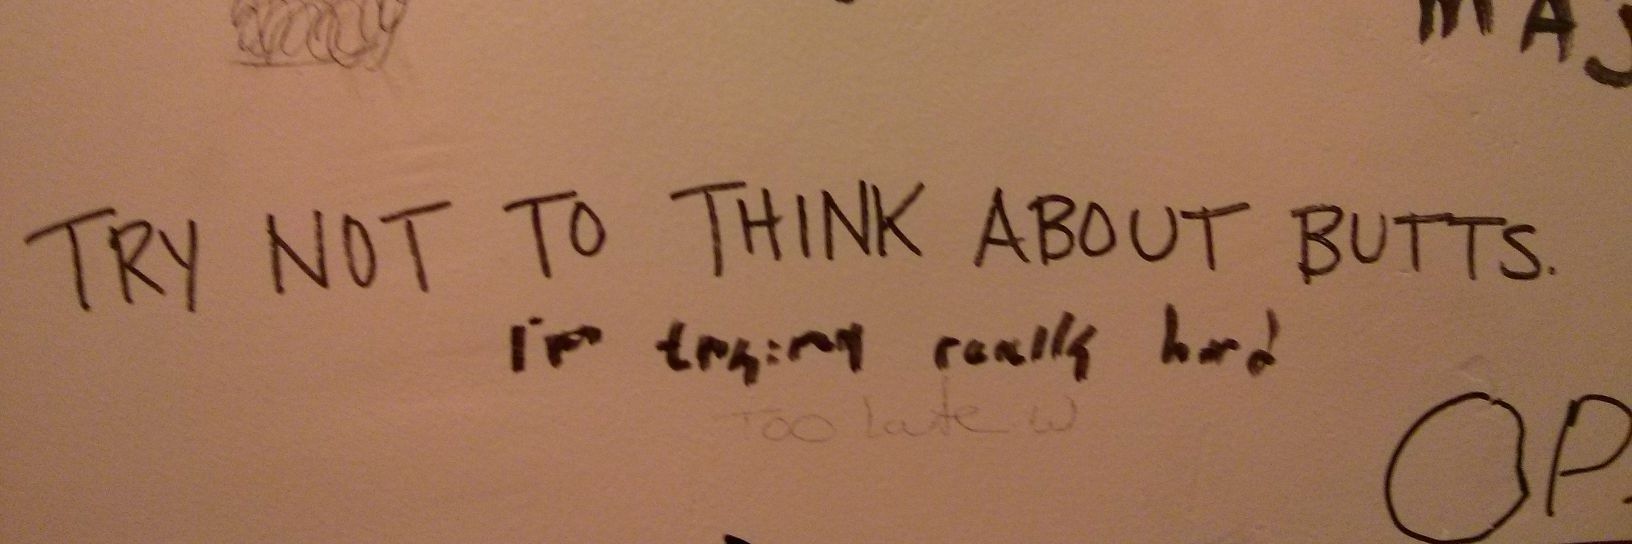 MAJ
TRY NOT TO THINK ABOUT BUTTS.
i'm trying really hard
Too late w
OP